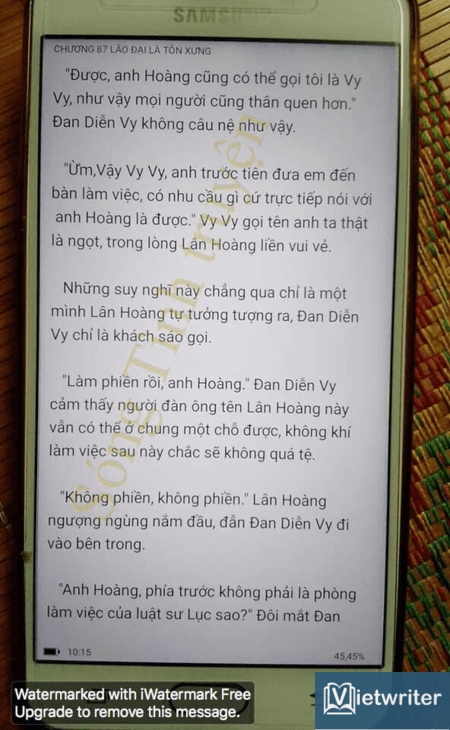 SAMSUNG
CHƯƠNG 87 LÃO ĐẠI LÀ TÔN XƯNG
"Được, anh Hoàng cũng có thể gọi tôi là Vy
Vy, như vậy mọi người cũng thân quen hơn."
Đan Diễn Vy không câu nệ như vậy.
"Ừm,Vậy Vy Vy, anh trước tiên đưa em đến
bàn làm việc, có nhu cầu gì cứ trực tiếp nói với
anh Hoàng là được." Vy Vy gọi tên anh ta thật
là ngọt, trong lòng Lân Hoàng liền vui vẻ.
Những suy nghĩ này chẳng qua chỉ là một
mình Lân Hoàng tự tưởng tượng ra, Đan Diễn
Vy chỉ là khách sáo gọi.
"Làm phiền rồi, anh Hoàng." Đan Diễn Vy
cảm thấy người đàn ông tên Lân Hoàng này
vẫn có thể ở chung một chỗ được, không khí
làm việc sau này chắc sẽ không quá tệ.
"Không phiền, không phiền." Lân Hoàng
ngượng ngùng nắm đầu, dẫn Đan Diễn Vy đi
vào bên trong.
"Anh Hoàng, phía trước không phải là phòng
làm việc của luật sư Lục sao?" Đôi mắt Đan
10:15
45,45%
Sóng Tình truyện
Watermarked with iWatermark Free
Upgrade to remove this message.
Vietwriter